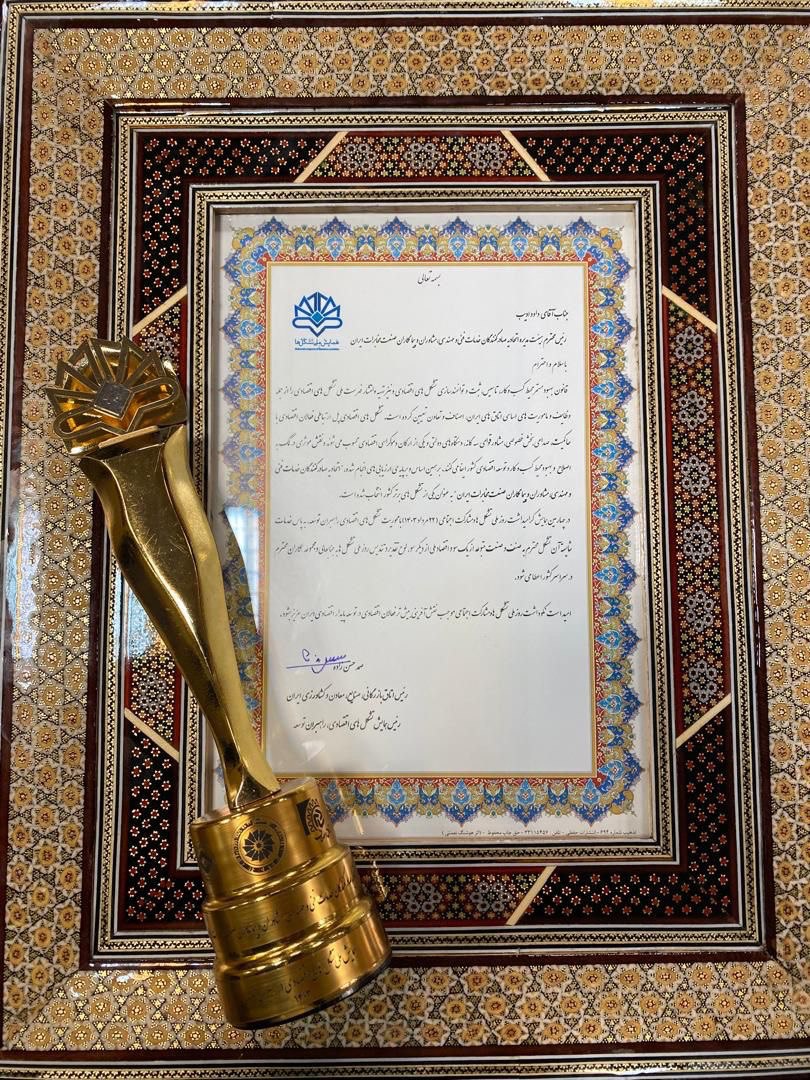 بسمه تعالی
همایش ملی تشکل‌ها
جناب آقای داود ادیب
رئیس محترم هیئت مدیره اتحادیه صادرکنندگان خدمات فنی و مهندسی، مشاوران و پیمانکاران صنعت مخابرات ایران
با سلام و احترام
قانون بهبود مستمر محیط کسب و کار، تاسیس، ثبت و توانمندسازی تشکل های اقتصادی و نیز تهیه و انتشار فهرست ملی تشکل های اقتصادی را از جمله
وظایف و ماموریت های اساسی اتاق های ایران، اصناف و تعاون تعیین کرده است. تشکل های اقتصادی پل ارتباطی فعالان اقتصادی با
حاکمیت، صدای بخش خصوصی، مشاور قوای سه گانه، دستگاه های دولتی و یکی از ارکان دموکراسی اقتصادی محسوب می شوند و نقش موثری در کمک به
اصلاح و بهبود محیط کسب و کار و توسعه اقتصادی کشور ایفا می کنند. بر همین اساس و بر پایه ارزیابی های انجام شده، "اتحادیه صادرکنندگان خدمات فنی
و مهندسی، مشاوران و پیمانکاران صنعت مخابرات ایران" به عنوان یکی از تشکل های برتر کشور انتخاب شده است.
در چهارمین همایش گرامیداشت روز ملی تشکل ها و مشارکت اجتماعی (۲۲ مرداد ۱۴۰۳) با محوریت تشکل های اقتصادی راهبران توسعه، به پاس خدمات
شایسته آن تشکل محترم به صنعت و اقتصاد ملی از دیگر سو، لوح تقدیر و تندیس روز ملی تشکل ها به جنابعالی و مجموعه همکاران محترم
در سراسر کشور اعطا می شود.
امید است نکوداشت روز ملی تشکل ها و مشارکت اجتماعی موجب نقش آفرینی بیش تر فعالان اقتصادی در توسعه پایدار اقتصادی ایران عزیز بشود.
صمد حسن زاده
رئیس اتاق بازرگانی، صنایع، معادن و کشاورزی ایران
رئیس همایش تشکل های اقتصادی، راهبران توسعه
تذهیب شماره ۶۹۴ - انتشارات حفظی - تلفن: ۳۳۱۱۵۴۵۶ - حق چاپ محفوظ - (اثر هوشنگ نعمتی)